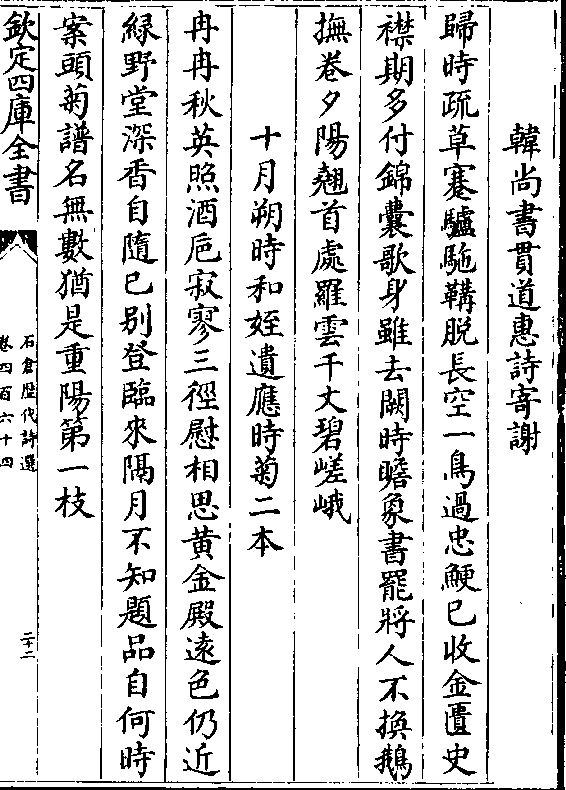 韓尚書貫道惠詩寄謝
歸時疏草蹇驢馱鞲脫長空一鳥過忠鯁已收金匱史
襟期多付錦囊歌身雖去闕時瞻象書罷將人不換鵝
撫卷夕陽翹首處羅雲千丈碧嵯峨
十月朔時和姪遺應時菊二本
冉冉秋英照酒巵寂寥三徑慰相思黃金殿遠色仍近
綠野堂深香自隨已别登臨來隔月不知題品自何時
案頭菊譜名無數猶是重陽第一枝
欽定四庫全書
石倉歷代詩選
卷四百六十四
二十二